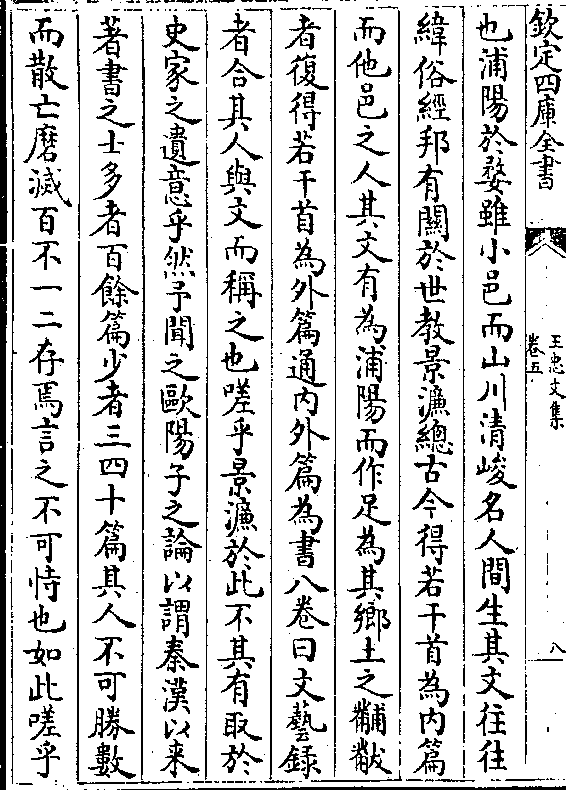 欽定四庫全書
王忠文集
卷五
八
也浦陽於婺雖小邑而山川清峻名人間生其文往往
緯俗經邦有關於世教景濂總古今得若干首為内篇
而他邑之人其文有為浦陽而作足為其鄉土之黼黻
者復得若干首為外篇通内外篇為書八卷曰文藝録
者合其人與文而稱之也嗟乎景濂於此不其有取於
史家之遺意乎然予聞之歐陽子之論以謂秦漢以来
著書之士多者百餘篇少者三四十篇其人不可勝數
而散亡磨滅百不一二存焉言之不可恃也如此嗟乎